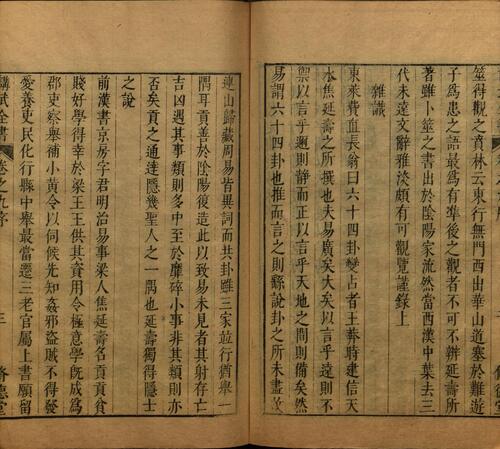 筮得觀之賁林云東行無門西出華山道塞於難遊
子爲患之語最爲有準後之觀者不可不辨延壽所
著雖卜筮之書出於陰陽家流然當西漢中葉去三
代未遠文辭雅淡頗有可觀覽謹錄上
雜識
東萊費直長翁曰六十四卦變占者王莽時建信天
水焦延壽之所撰也大易廣矣大矣以言乎遠則不
禦以言乎邇則靜而正以言乎天地之間則備矣然
易謂六十四卦也推而言之則繇說卦之所未盡故
連山歸藏周易皆異詞而共卦雖三家並行猶舉一
隅耳貢善於陰陽後造此以致易未見者其射存亡
吉凶遇其事類則多中至於靡碎小事非其類則亦
否矣貢之通達隱幾聖人之一隅也延壽獨得隱士
之說
前漢書京房字君明治易事梁人焦延壽名貢貢貧
賤好學得幸於梁王王供其資用令極意學旣成爲
郡吏察舉補小黃令以伺候先知姦邪盜賊不得發
愛養吏民化行縣中舉最當遷三老官屬上書願留
卷之九序
三